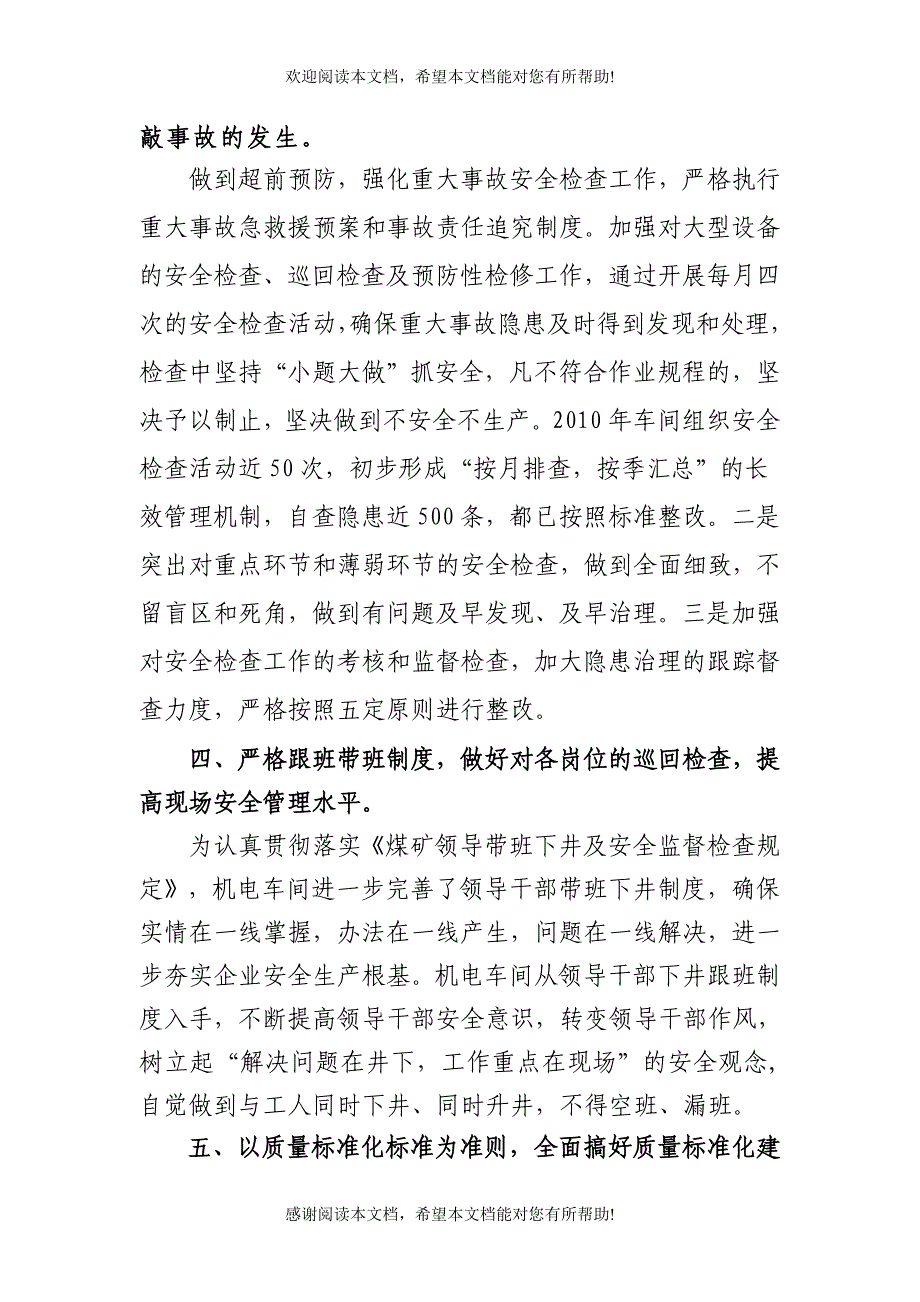 欢迎阅读本文档，希望本文档能对您有所帮助!
敲事故的发生。
做到超前预防，强化重大事故安全检查工作，严格执行
重大事故急救援预案和事故责任追究制度。加强对大型设备
的安全检查、巡回检查及预防性检修工作，通过开展每月四
次的安全检查活动，确保重大事故隐患及时得到发现和处理，
检查中坚持“小题大做”抓安全，凡不符合作业规程的，坚
决予以制止，坚决做到不安全不生产。2010 年车间组织安全
检查活动近 50 次，初步形成“按月排查，按季汇总”的长
效管理机制，自查隐患近 500 条，都已按照标准整改。二是
突出对重点环节和薄弱环节的安全检查，做到全面细致，不
留盲区和死角，做到有问题及早发现、及早治理。三是加强
对安全检查工作的考核和监督检查，加大隐患治理的跟踪督
查力度，严格按照五定原则进行整改。
四、严格跟班带班制度，做好对各岗位的巡回检查，提
高现场安全管理水平。
为认真贯彻落实《煤矿领导带班下井及安全监督检查规
定》，机电车间进一步完善了领导干部带班下井制度，确保
实情在一线掌握，办法在一线产生，问题在一线解决，进一
步夯实企业安全生产根基。机电车间从领导干部下井跟班制
度入手，不断提高领导干部安全意识，转变领导干部作风，
树立起“解决问题在井下，工作重点在现场”的安全观念，
自觉做到与工人同时下井、同时升井，不得空班、漏班。
五、以质量标准化标准为准则，全面搞好质量标准化建
感谢阅读本文档，希望本文档能对您有所帮助!